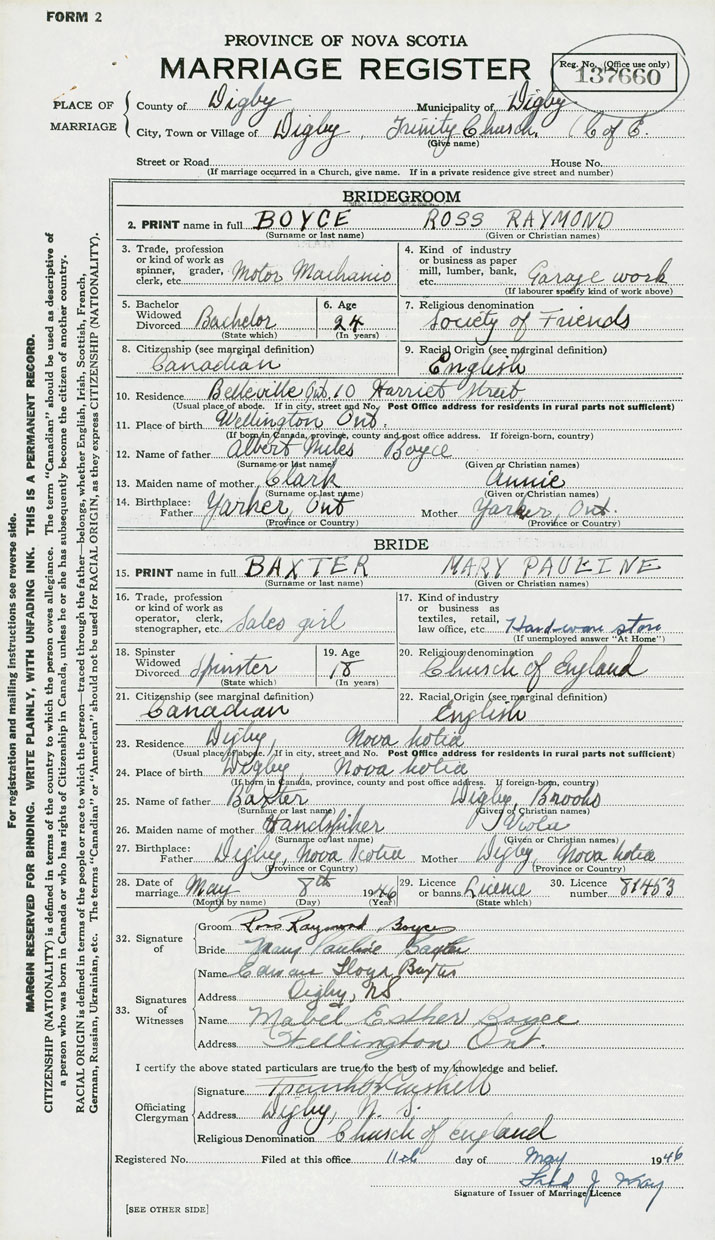 FORM 2
PROVINCE OF NOVA SCOTIA
MARRIAGE REGISTER
Reg. No. (Office use only)
137660
PLACE OF MARRIAGE
County of Digby Municipality of Digby
City, Town or Village of Digby, Trinity Church. (C of E.
(Give name)
Street or Road House No.
(If marriage occurred in a Church, give name. If in a private residence give street and number)
BRIDEGROOM
2. PRINT name in full BOYCE ROSS RAYMOND
(Surname or last name) (Given or Christian names)
3. Trade, profession or kind of work as spinner, grader, clerk, etc. Motor Machanic
4. Kind of industry or business as paper mill, lumber, bank, etc. Garage work
(If labourer specify kind of work above)
5. Bachelor Widowed Divorced Bachelor
(State which)
6. Age 24
(In years)
7. Religious denomination
Society of Friends
8. Citizenship (see marginal definition)
Canadian
9. Racial Origin (see marginal definition)
English
10. Residence Belleville Ont. 10 Harriet Street
(Usual place of abode. If in city, street and No. Post Office address for residents in rural parts not sufficient)
11. Place of birth Wellington Ont.
(If born in Canada, province, county and post office address. If foreign-born, country)
12. Name of father Albert Miles Boyce
(Surname or last name) (Given or Christian names)
13. Maiden name of mother Clark Annie
(Surname or last name) (Given or Christian names)
14. Birthplace: Father Yarker, Ont Mother Yarker, Ont.
(Province or Country) (Province or Country)
BRIDE
15. PRINT name in full BAXTER MARY PAULINE
(Surname or last name) (Given or Christian names)
16. Trade, profession or kind of work as operator, clerk, stenographer, etc. Sales girl
17. Kind of industry or business as textiles, retail, law office, etc. Hard-ware store
(If unemployed answer "At Home")
18. Spinster Widowed Divorced Spinster
(State which)
19. Age 18
(In years)
20. Religious denomination
Church of England
21. Citizenship (see marginal definition)
Canadian
22. Racial Origin (see marginal definition)
English
23. Residence Digby, Nova Scotia
(Usual place of abode. If in city, street and No. Post Office address for residents in rural parts not sufficient)
24. Place of birth Digby, Nova Scotia
(If born in Canada, province, county and post office address. If foreign-born, country)
25. Name of father Baxter Digby, Brooks
(Surname or last name) (Given or Christian names)
26. Maiden name of mother Handspiker Viola
(Surname or last name) (Given or Christian names)
27. Birthplace: Father Digby, Nova Scotia Mother Digby, Nova Scotia
(Province or Country) (Province or Country)
28. Date of marriage May 8th 1946
(Month by name) (Day) (Year)
29. Licence or banns Licence
(State which)
30. Licence number 81453
32. Signature of
Groom Ross Raymond Boyce
Bride Mary Pauline Baxter
33. Signatures of Witnesses
Name Lloyd Baxter
Address Digby, NS.
Name Mabel Esther Boyce
Address Wellington Ont.
I certify the above stated particulars are true to the best of my knowledge and belief.
Officiating Clergyman
Signature
Address Digby, N. S.
Religious Denomination Church of England
Registered No. Filed at this office 11th day of May 1946
Fred J
Signature of Issuer of Marriage Licence
[SEE OTHER SIDE]
For registration and mailing instructions see reverse side.
MARGIN RESERVED FOR BINDING. WRITE PLAINLY, WITH UNFADING INK. THIS IS A PERMANENT RECORD.
CITIZENSHIP (NATIONALITY) is defined in terms of the country to which the person owes allegiance. The term "Canadian" should be used as descriptive of
a person who was born in Canada or who has rights of Citizenship in Canada, unless he or she has subsequently become the citizen of another country.
RACIAL ORIGIN is defined in terms of the people or race to which the person—traced through the father—belongs, whether English, Irish, Scottish, French,
German, Russian, Ukrainian, etc. The terms "Canadian" or "American" should not be used for RACIAL ORIGIN, as they express CITIZENSHIP (NATIONALITY).